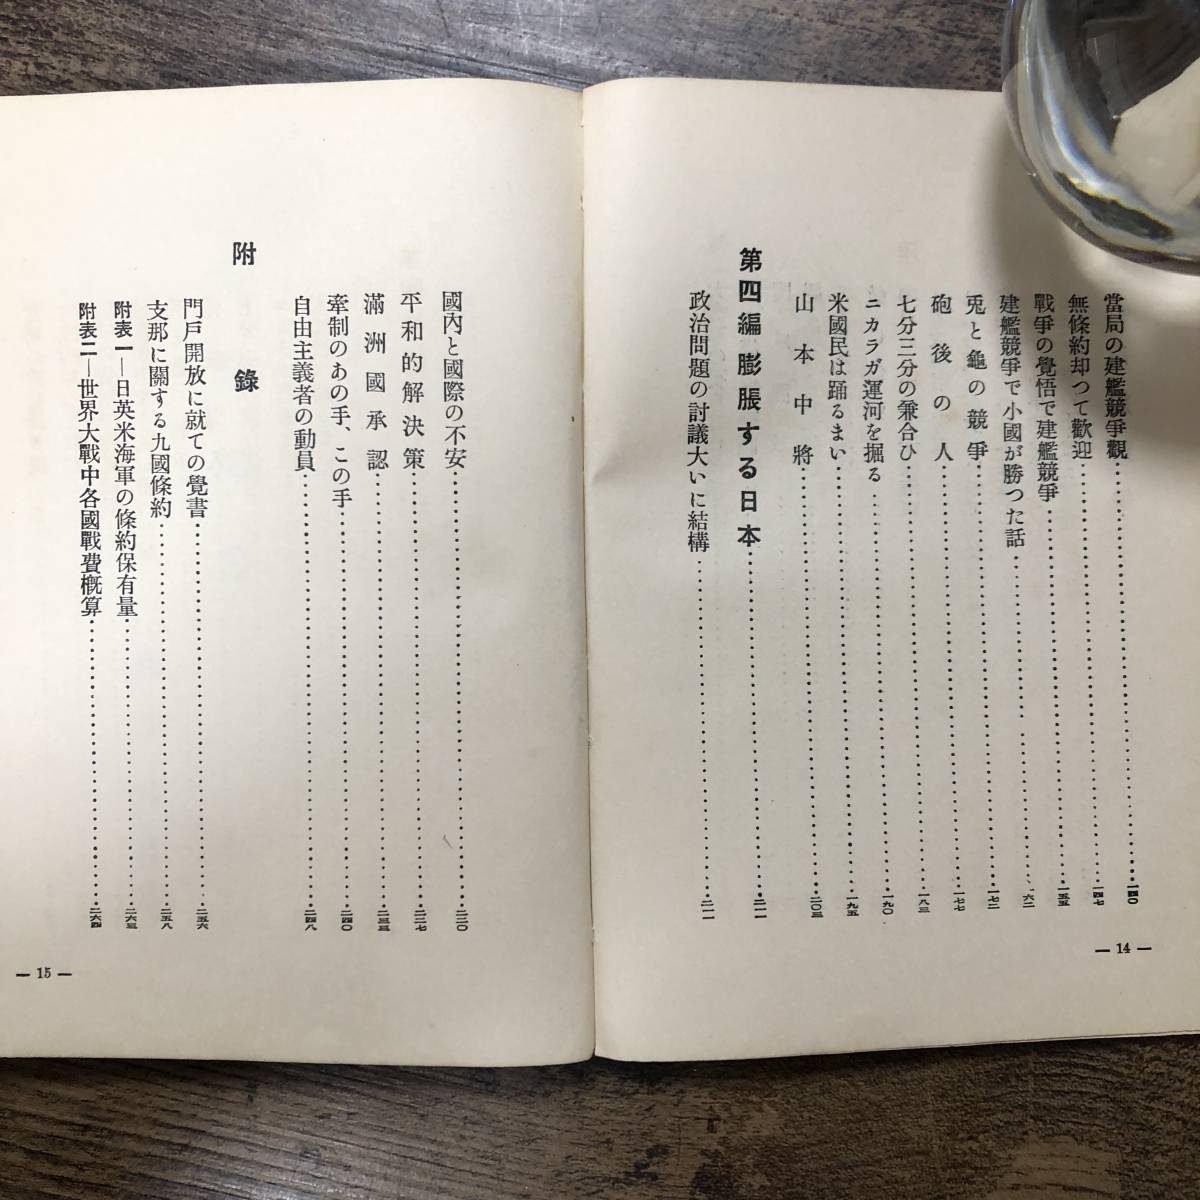 當局の建艦競爭觀……一四〇
無條約却つて歡迎……一四七
戰爭の覺悟で建艦競爭……一五五
建艦競爭で小國が勝つた話……一六二
兎と龜の競爭……一七二
砲後の人……一七七
七分三分の兼合ひ……一八三
ニカラガ運河を掘る……一九〇
米國民は踊るまい……一九五
山本中將……二〇三
第四編 膨脹する日本……二一一
政治問題の討議大いに結構……二一一
— 14 —
國內と國際の不安……二二〇
平和的解決策……二二七
滿洲國承認……二三三
牽制のあの手、この手……二四〇
自由主義者の動員……二四八
附錄
門戶開放に就ての覺書……二五六
支那に關する九國條約……二五八
附表一—日英米海軍の條約保有量……二六三
附表二—世界大戰中各國戰費概算……二六四
— 15 —